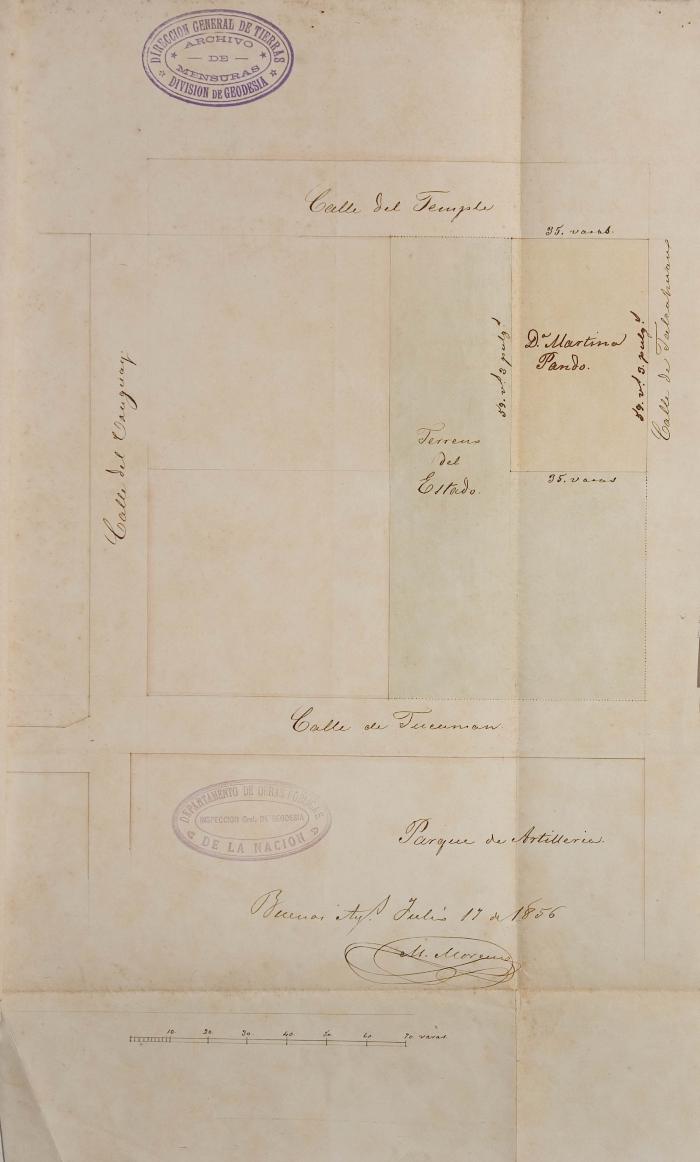 DIRECCION GENERAL DE TIERRAS
ARCHIVO
DE
MENSURAS
DIVISION DE GEODESIA
Calle del Temple
35. varas.
Calle de Talcahuano
Dª Martina
Pando.
59. vs. 3. pulgs
59. vs. 3 pulgs
Calle del Uruguay
Terreno
del
Estado.
35. varas
Calle de Tucuman.
DEPARTAMENTO DE OBRAS PUBLICAS
INSPECCION Gral. DE GEODESIA
DE LA NACION
Parque de Artilleria.
Buenos Ays. Julio 17 de 1856
M. Moreno
10. 20. 30. 40. 50. 60. 70 varas